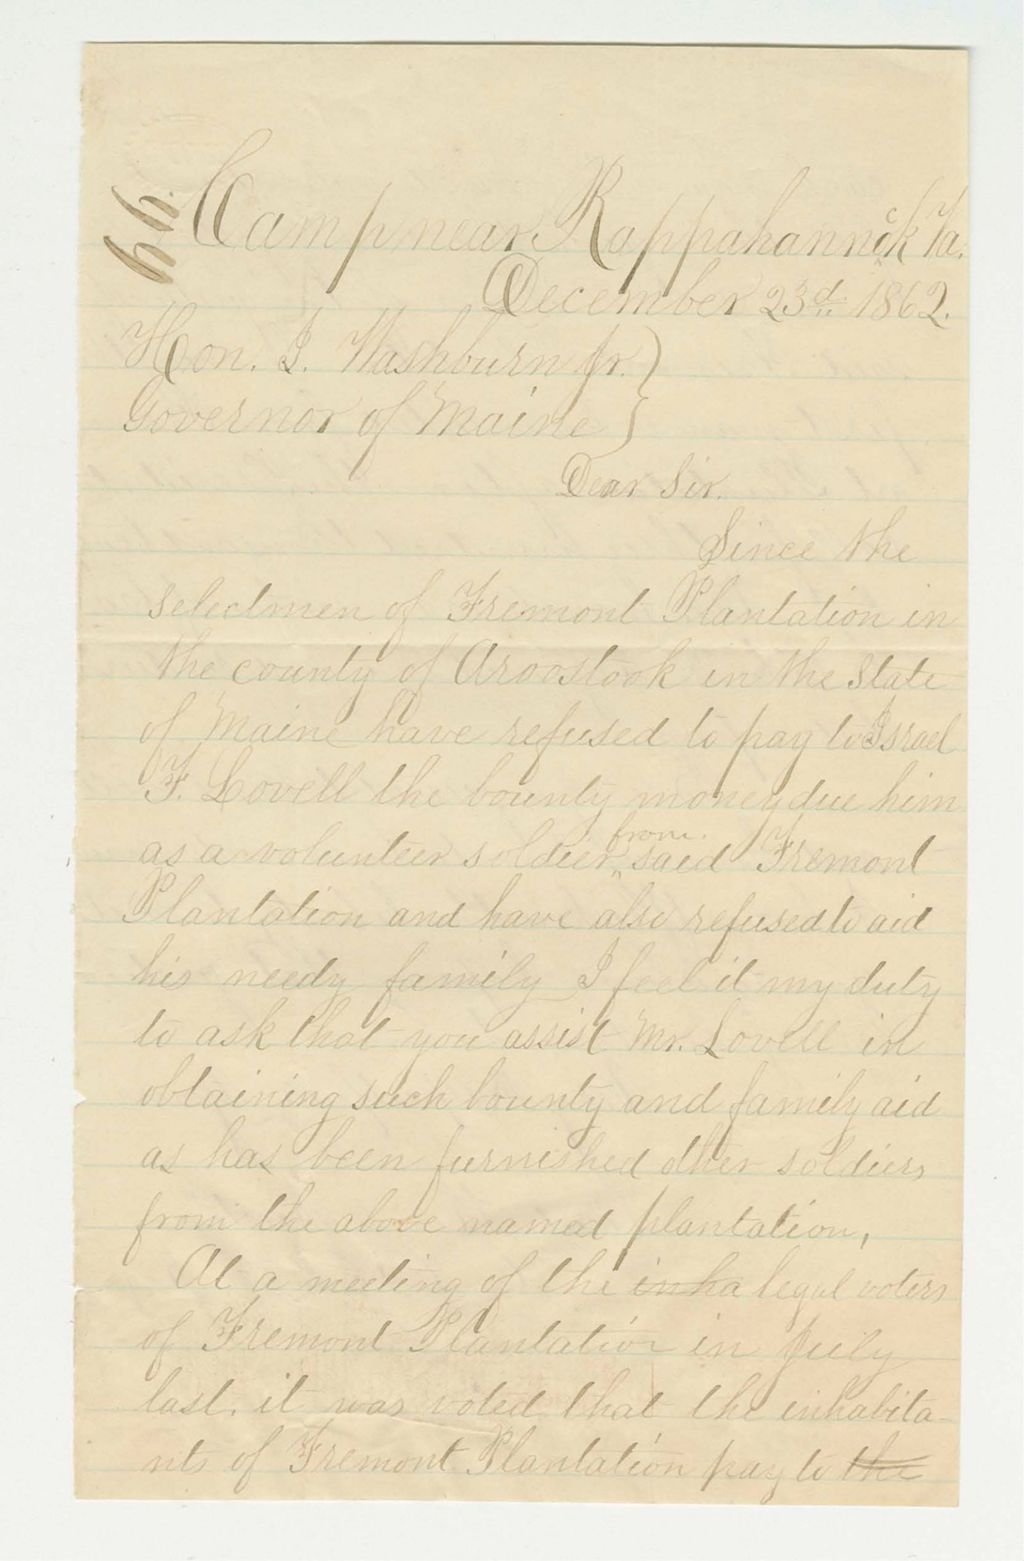 66.
Camp near Rappahannock Va.
December 23d. 1862.
Hon. I. Washburn Jr. }
Governor of Maine }
Dear Sir.
Since the
selectmen of Fremont Plantation in
the county of Aroostook in the State
of Maine have refused to pay to Israel
F. Lovell the bounty money due him
as a volunteer soldier, from said Fremont
Plantation and have also refused to aid
his needy family I feel it my duty
to ask that you assist Mr. Lovell in
obtaining such bounty and family aid
as has been furnished other soldiers
from the above named plantation,
At a meeting of the inha legal voters
of Fremont Plantation in July
last. it was voted that the inhabita-
nts of Fremont Plantation pay to the